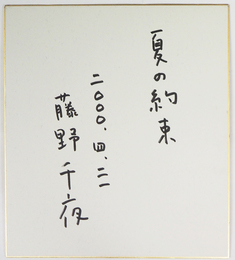 夏の約束
二〇〇〇.四.二一
藤野千夜